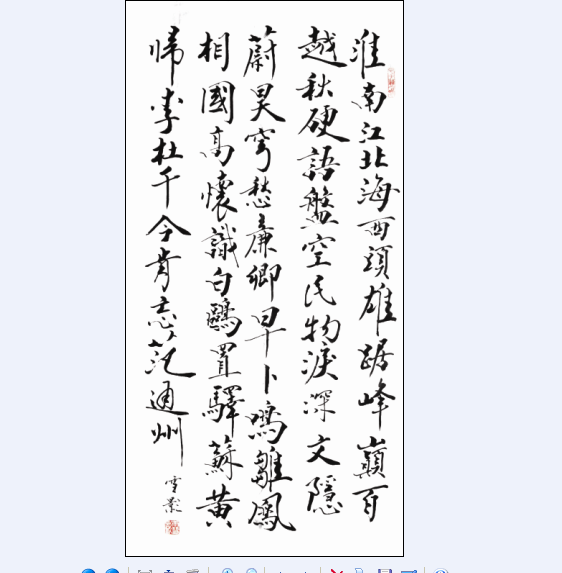 淮南江北海西頭雄踞峰巔百
越秋硬語盤空民物淚深文隱
蔚昊穹愁廉卿早卜鳴雛鳳
相國高懷識白鷗置驛蘇黃
歸李杜千今肯忘范通州
雪影